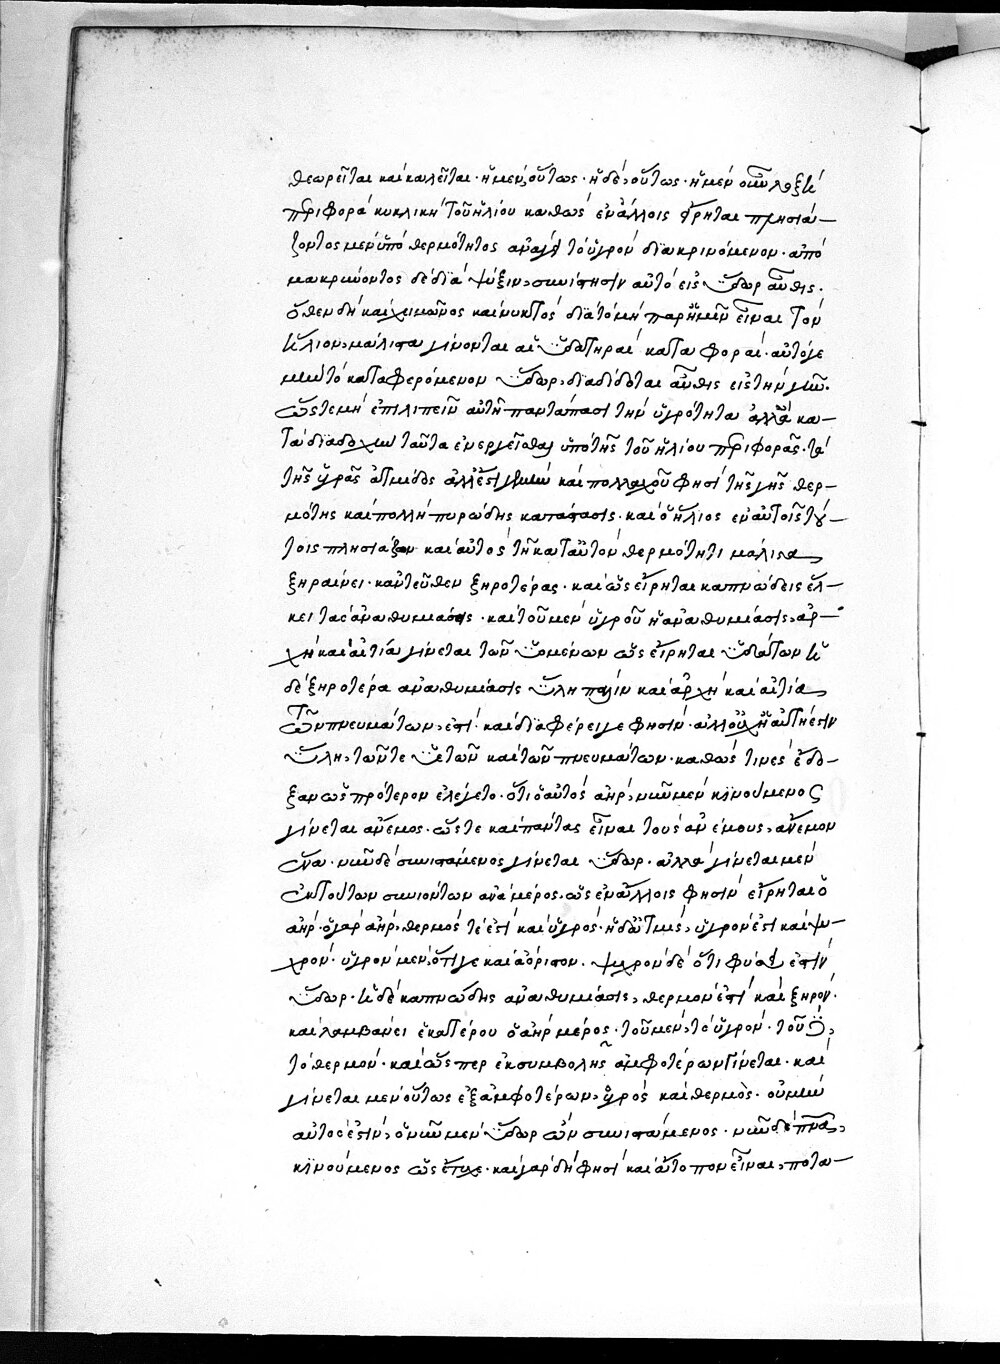 θεωρεῖται καὶ καλεῖται· ἡ μὲν, οὕτως· ἡ δὲ, οὕτως· ἡ μὲν οὖν λοξὴ
περιφορὰ κυκλικὴ τοῦ ἡλίου καθὼς ἐν ἄλλοις εἴρηται πλησιά-
ζοντος μὲν ὑπὸ θερμότητος ἀνάγει τὸ ὑγρὸν διακρινόμενον· ἀπο
μακρύνοντος δὲ διὰ ψύξιν, συνίστησιν αὐτὸ εἰς ὕδωρ αὖθις·
ὅθεν δὴ καὶ χειμῶνος καὶ νυκτὸς διὰ τὸ μὴ παρ' ἡμῖν εἶναι τὸν
ἥλιον, μάλιστα γίνονται αἱ ὑδατηραὶ καταφοραί· αὐτό γε
μὴν τὸ καταφερόμενον ὕδωρ, διαδίδοται αὖθις εἰς τὴν γῆν·
ὥστε μὴ ἐπιλιπεῖν αὐτῇ παντάπασι τὴν ὑγρότητα ἀλλὰ κα-
τὰ διαδοχὴν ταῦτα ἐνεργεῖσθαι ὑπὸ τῆς τοῦ ἡλίου περιφορᾶς· τὰ
τῆς ὑγρᾶς ἀτμίδος ἀλλ' ἔστι μὴν καὶ πολλαχοῦ φησὶ τῆς γῆς θερ-
μότης καὶ πολλὴ πυρώδης κατάστασις· καὶ ὁ ἥλιος ἐν αὐτοῖς τού-
τοις πλησιάζων καὶ αὐτὸς τῇ κατ' αὐτὸν θερμότητι μάλιστα
ξηραίνει· κἀντεῦθεν ξηροτέρας· καὶ ὡς εἴρηται καπνώδεις ἕλ-
κει τὰς ἀναθυμιάσεις· καὶ τοῦ μὲν ὑγροῦ ἡ ἀναθυμίασις, ἀρ-
χὴ καὶ αἰτία γίνεται τῶν ὑομένων ὡς εἴρηται ὑδάτων ἡ
δὲ ξηροτέρα ἀναθυμίασις ὕλη πάλιν καὶ ἀρχὴ καὶ αἰτία
τῶν πνευμάτων, ἐστί· καὶ διαφέρει γε φησίν· ἀλλ' οὐχ ἡ αὐτή ἐστιν
ὕλη, τῶν τε ὑετῶν καὶ τῶν πνευμάτων· καθώς τινες ἔδο-
ξαν ὡς πρότερον ἐλέγετο· ὅτι ὁ αὐτὸς ἀὴρ, νῦν μὲν κινούμενος
γίνεται ἄνεμος· ὥστε καὶ πάντας εἶναι τοὺς ἀνέμους, ἄνεμον
ἕνα· νῦν δὲ συνιστάμενος γίνεται ὕδωρ· ἀλλὰ γίνεται μὲν
ἐκ τούτων συνιόντων ἀνὰ μέρος· ὡς ἐν ἄλλοις φησὶν εἴρηται ὁ
ἀήρ· ὁ γὰρ ἀὴρ, θερμός τέ ἐστι καὶ ὑγρός· ἡ δ' ἀτμίς, ὑγρόν ἐστι καὶ ψυ-
χρόν· ὑγρὸν μὲν, ὅτι γε καὶ ἀόριστον· ψυχρὸν δὲ ὅτι φύσει ἐστὶν
ὕδωρ· ἡ δὲ καπνώδης ἀναθυμίασις, θερμόν ἐστι καὶ ξηρόν·
καὶ λαμβάνει ἑκατέρου ὁ ἀὴρ μέρος· τοῦ μὲν, τὸ ὑγρόν· τοῦ δὲ,
τὸ θερμόν· καὶ ὥσπερ ἐκ συμβολῆς ἀμφοτέρων γίνεται· καὶ
γίνεται μὲν οὕτως ἐξ ἀμφοτέρων, ὑγρὸς καὶ θερμός· οὐ μὴν
αὐτός ἐστιν, ὁ νῦν μὲν ὕδωρ ὢν συνιστάμενος· νῦν δὲ πνεῦμα,
κινούμενος ὡς ἔτυχε· καὶ γὰρ δὴ φησὶ καὶ ἄτοπον εἶναι, ποτα-